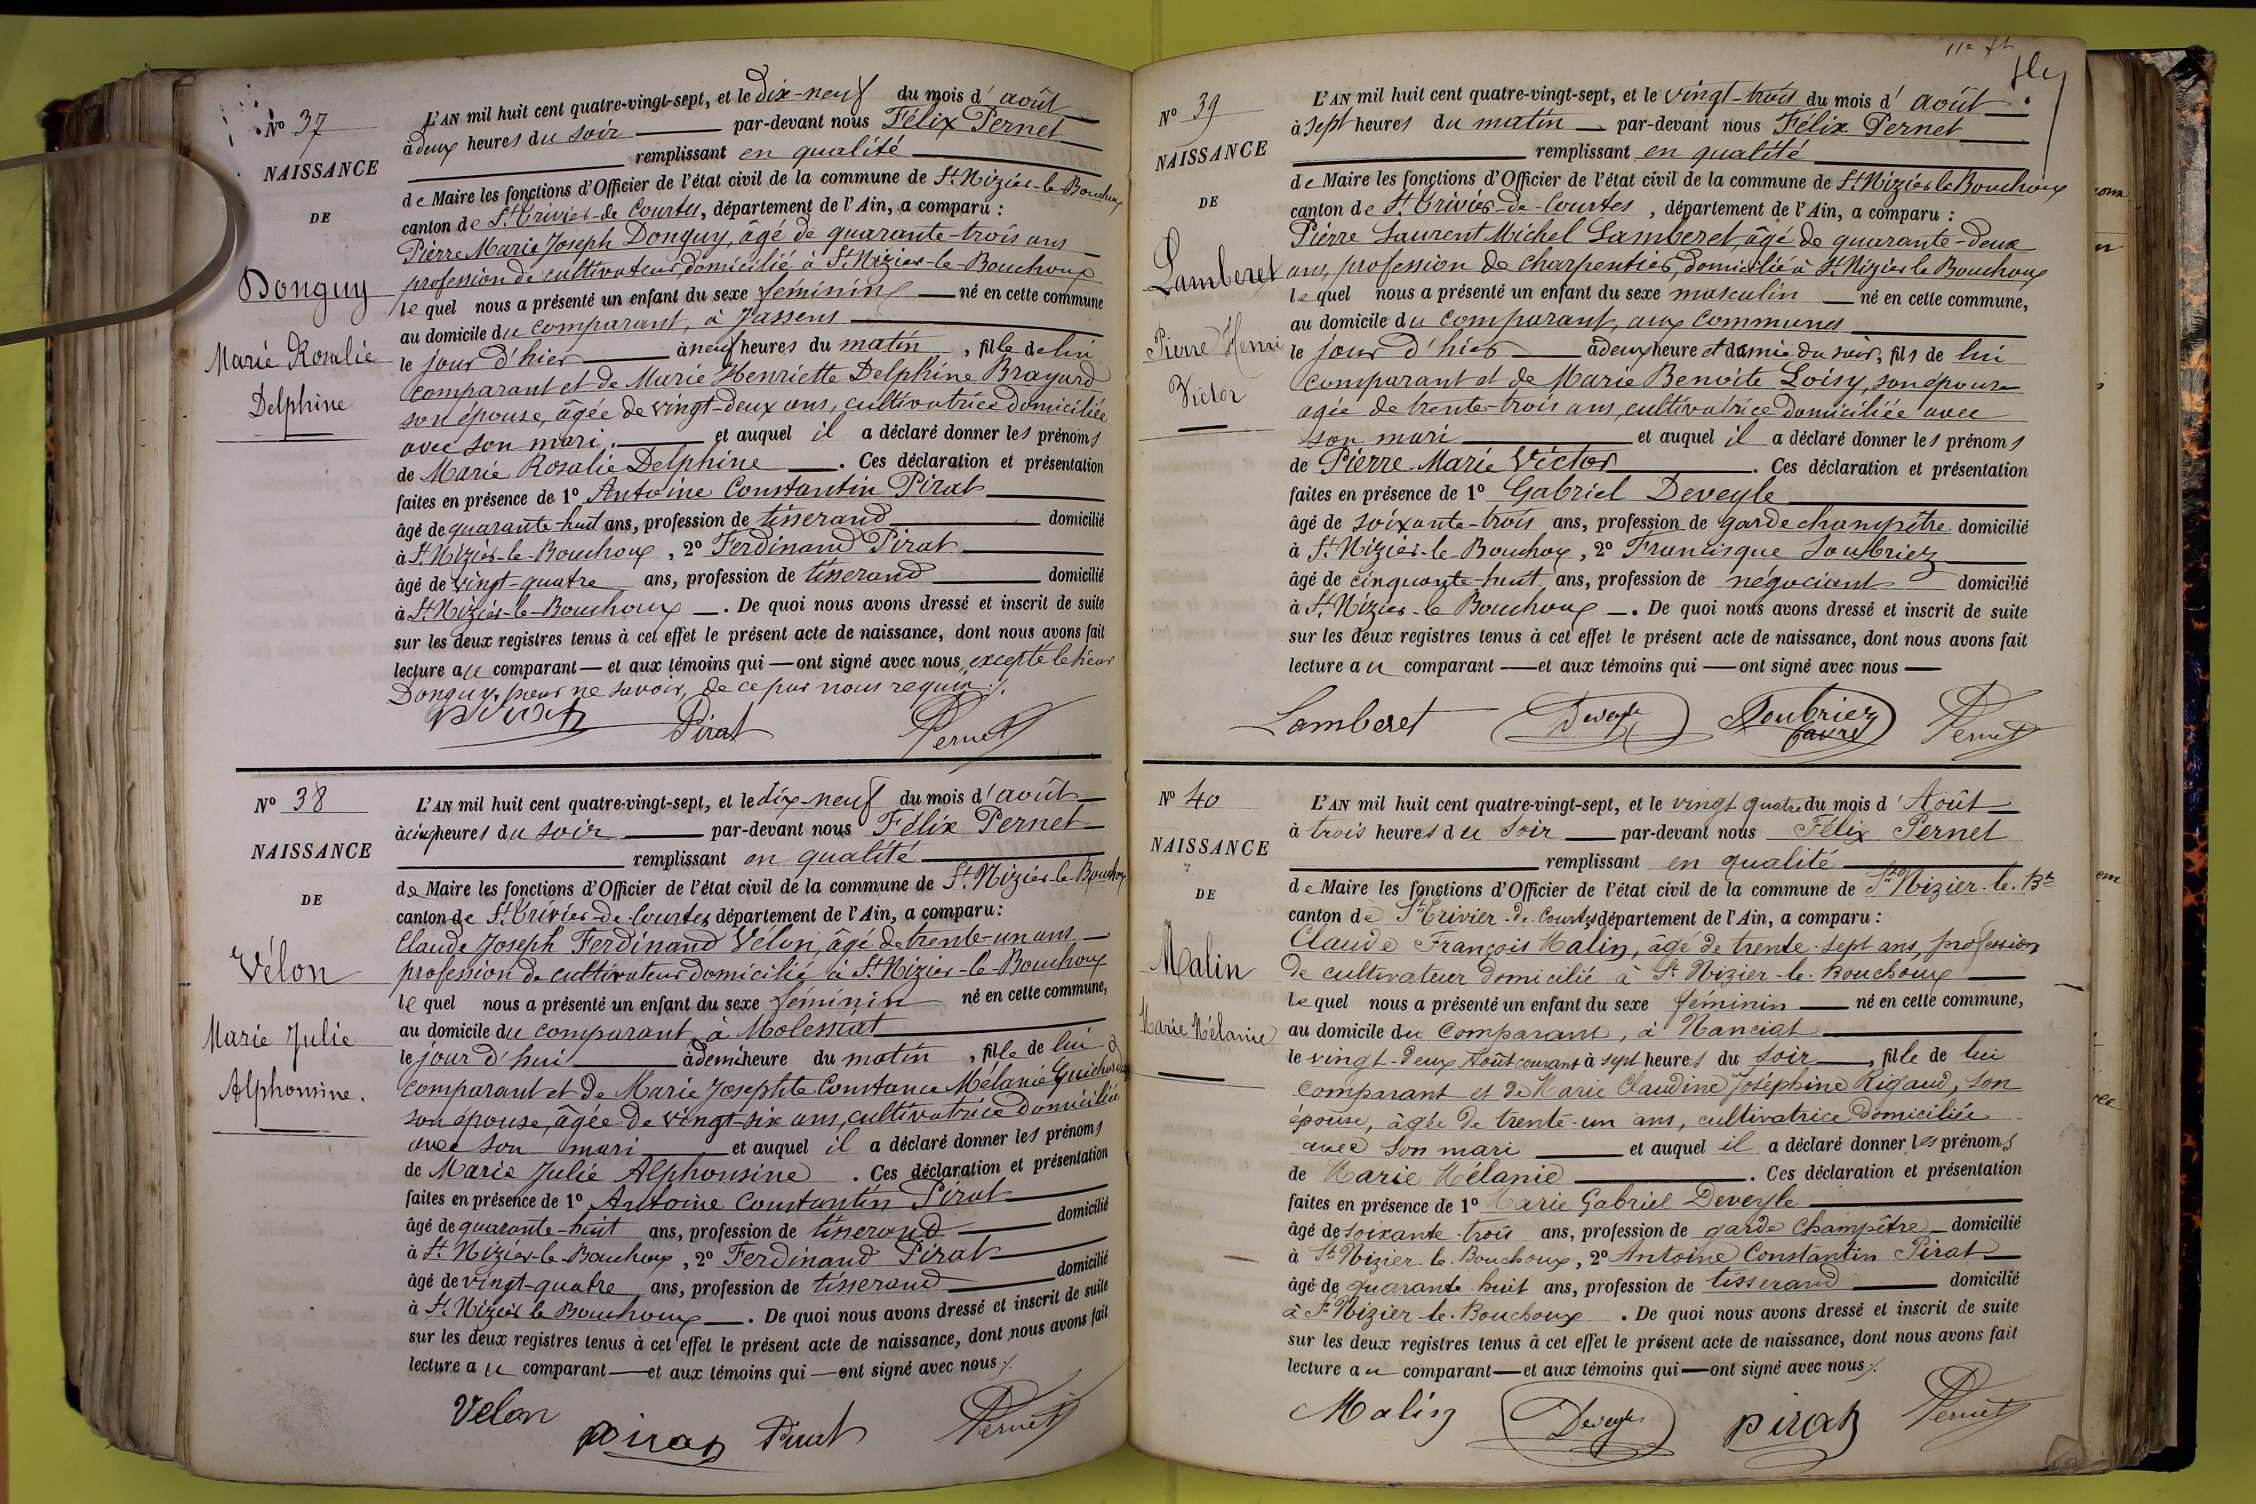 N° 37
NAISSANCE
DE
Donguy
Marie Rosalie
Delphine
L'AN mil huit cent quatre-vingt-sept, et le dix-neuf du mois d'août
à deux heures du soir par-devant nous Félix Pernet
remplissant en qualité
de Maire les fonctions d'Officier de l'état civil de la commune de St. Nizier-le-Bouchoux
canton de St. Trivier-de-Courtes, département de l'Ain, a comparu :
Pierre Marie Joseph Donguy, âgé de quarante-trois ans
profession de cultivateur, domicilié à St. Nizier-le-Bouchoux
lequel nous a présenté un enfant du sexe féminin né en cette commune
au domicile du comparant, à Jassens
le jour d'hier à neuf heures du matin, fille de lui
comparant et de Marie Henriette Delphine Brayard
son épouse, âgée de vingt-deux ans, cultivatrice domiciliée
avec son mari. et auquel il a déclaré donner les prénoms
de Marie Rosalie Delphine . Ces déclaration et présentation
faites en présence de 1° Antoine Constantin Pirat
âgé de quarante-huit ans, profession de tisserand domicilié
à St. Nizier-le-Bouchoux, 2° Ferdinand Pirat
âgé de vingt-quatre ans, profession de tisserand domicilié
à St. Nizier-le-Bouchoux . De quoi nous avons dressé et inscrit de suite
sur les deux registres tenus à cet effet le présent acte de naissance, dont nous avons fait
lecture au comparant et aux témoins qui ont signé avec nous, excepté le sieur
Donguy, pour ne savoir, de ce par nous requis ./.
Pirat Pirat Pernet
N° 38
NAISSANCE
DE
Vélon
Marie Julie
Alphonsine.
L'AN mil huit cent quatre-vingt-sept, et le dix-neuf du mois d'août
à cinq heures du soir par-devant nous Félix Pernet
remplissant en qualité
de Maire les fonctions d'Officier de l'état civil de la commune de St. Nizier-le-Bouchoux
canton de St. Trivier-de-Courtes, département de l'Ain, a comparu :
Claude Joseph Ferdinand Vélon, âgé de trente-un ans
profession de cultivateur domicilié à St. Nizier-le-Bouchoux
lequel nous a présenté un enfant du sexe féminin né en cette commune,
au domicile du comparant, à Molessiat
le jour d'hui à demi heure du matin, fille de lui
comparant et de Marie Josephte Constance Mélanie Guichard
son épouse, âgée de vingt-six ans, cultivatrice domiciliée
avec son mari et auquel il a déclaré donner les prénoms
de Marie Julie Alphonsine . Ces déclaration et présentation
faites en présence de 1° Antoine Constantin Pirat
âgé de quarante-huit ans, profession de tisserand domicilié
à St. Nizier-le-Bouchoux, 2° Ferdinand Pirat
âgé de vingt-quatre ans, profession de tisserand domicilié
à St. Nizier le Bouchoux . De quoi nous avons dressé et inscrit de suite
sur les deux registres tenus à cet effet le présent acte de naissance, dont nous avons fait
lecture au comparant et aux témoins qui ont signé avec nous ./.
Velon Pirat Pirat Pernet
N° 39
NAISSANCE
DE
Lamberet
Pierre Henri
Victor
L'AN mil huit cent quatre-vingt-sept, et le vingt-trois du mois d'août
à sept heures du matin par-devant nous Félix Pernet
remplissant en qualité
de Maire les fonctions d'Officier de l'état civil de la commune de St. Nizier le Bouchoux
canton de St. Trivier-de-Courtes, département de l'Ain, a comparu :
Pierre Laurent Michel Lamberet, âgé de quarante-deux
ans, profession de charpentier, domicilié à St. Nizier le Bouchoux
lequel nous a présenté un enfant du sexe masculin né en cette commune,
au domicile du comparant, aux Communes
le jour d'hier à deux heure et demie du soir, fils de lui
comparant et de Marie Benoite Loisy, son épouse
agée de trente-trois ans, cultivatrice domiciliée avec
son mari et auquel il a déclaré donner les prénoms
de Pierre Marie Victor . Ces déclaration et présentation
faites en présence de 1° Gabriel Deveyle
âgé de soixante-trois ans, profession de garde champêtre domicilié
à St. Nizier-le-Bouchox, 2° Francisque Soubriez
âgé de cinquante-huit ans, profession de négociant domicilié
à St. Nizier-le Bouchoux . De quoi nous avons dressé et inscrit de suite
sur les deux registres tenus à cet effet le présent acte de naissance, dont nous avons fait
lecture au comparant et aux témoins qui ont signé avec nous
Lamberet Deveyle Soubriez Favre Pernet
N° 40
NAISSANCE
DE
Malin
Marie Mélanie
L'AN mil huit cent quatre-vingt-sept, et le vingt quatre du mois d'Août
à trois heures du soir par-devant nous Félix Pernet
remplissant en qualité
de Maire les fonctions d'Officier de l'état civil de la commune de St. Nizier-le-Bx
canton de St. Trivier-de-Courtes département de l'Ain, a comparu :
Claude François Malin, âgé de trente-sept ans, profession
de cultivateur domicilié à St. Nizier-le-Bouchoux
lequel nous a présenté un enfant du sexe féminin né en cette commune,
au domicile du comparant, à Nanciat
le vingt-deux Août courant à sept heures du soir, fille de lui
comparant et de Marie Claudine Joséphine Rigaud, son
épouse, âgée de trente-un ans, cultivatrice domiciliée
avec son mari et auquel il a déclaré donner les prénoms
de Marie Mélanie . Ces déclaration et présentation
faites en présence de 1° Marie Gabriel Deveyle
âgé de soixante-trois ans, profession de garde champêtre domicilié
à St. Nizier-le-Bouchoux, 2° Antoine Constantin Pirat
âgé de quarante-huit ans, profession de tisserand domicilié
à St. Nizier-le-Bouchoux . De quoi nous avons dressé et inscrit de suite
sur les deux registres tenus à cet effet le présent acte de naissance, dont nous avons fait
lecture au comparant et aux témoins qui ont signé avec nous ./.
Malin Deveyle Pirat Pernet